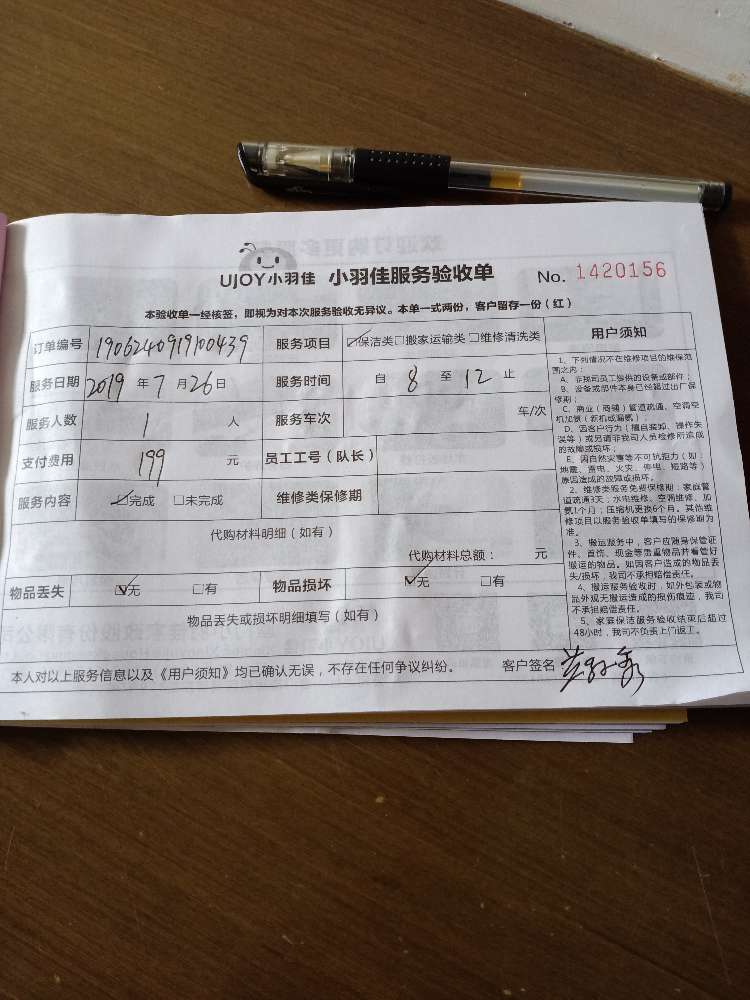 UJOY小羽佳 小羽佳服务验收单 No. 1420156
本验收单一经核签，即视为对本次服务验收无异议。本单一式两份，客户留存一份（红）
订单编号 1906240919100439 服务项目 ☑保洁类□搬家运输类□维修清洗类
服务日期 2019 年 7 月 26 日 服务时间 自 8 至 12 止
服务人数 1 人 服务车次 车/次
支付费用 199 元 员工工号（队长）
服务内容 ☑完成 □未完成 维修类保修期
代购材料明细（如有）
代购材料总额： 元
物品丢失 ☑无 □有 物品损坏 ☑无 □有
物品丢失或损坏明细填写（如有）
本人对以上服务信息以及《用户须知》均已确认无误，不存在任何争议纠纷。 客户签名
用户须知
1、下列情况不在维修项目的维保范
围之内：
A、非我司员工提供的设备或部件；
B、设备或部件本身已经超过出厂保
修期；
C、商业（商铺）管道疏通、空调空
机加氨（拆机或漏氨）；
D、因客户行为（擅自装卸、操作失
误等）或另请非我司人员检修所造成
的故障或损坏；
E、因自然灾害等不可抗拒力（如：
地震、雷电、火灾、停电、短路等）
原因造成的故障或损坏。
2、维修类服务免费保修期：家庭管
道疏通3天；水电维修、空调维修、加
氨1个月；压缩机更换6个月。其他维
修项目以服务验收单填写的保修期为
准。
3、搬运服务中，客户应随身保管证
件、首饰、现金等贵重物品并看管好
搬运的物品。如因客户造成的物品丢
失/损坏，我司不承担赔偿责任。
4、搬运服务验收时，如外包装或物
品外观无搬运造成的损伤痕迹，我司
不承担赔偿责任。
5、家庭保洁服务验收结束后超过
48小时，我司不负责上门返工。